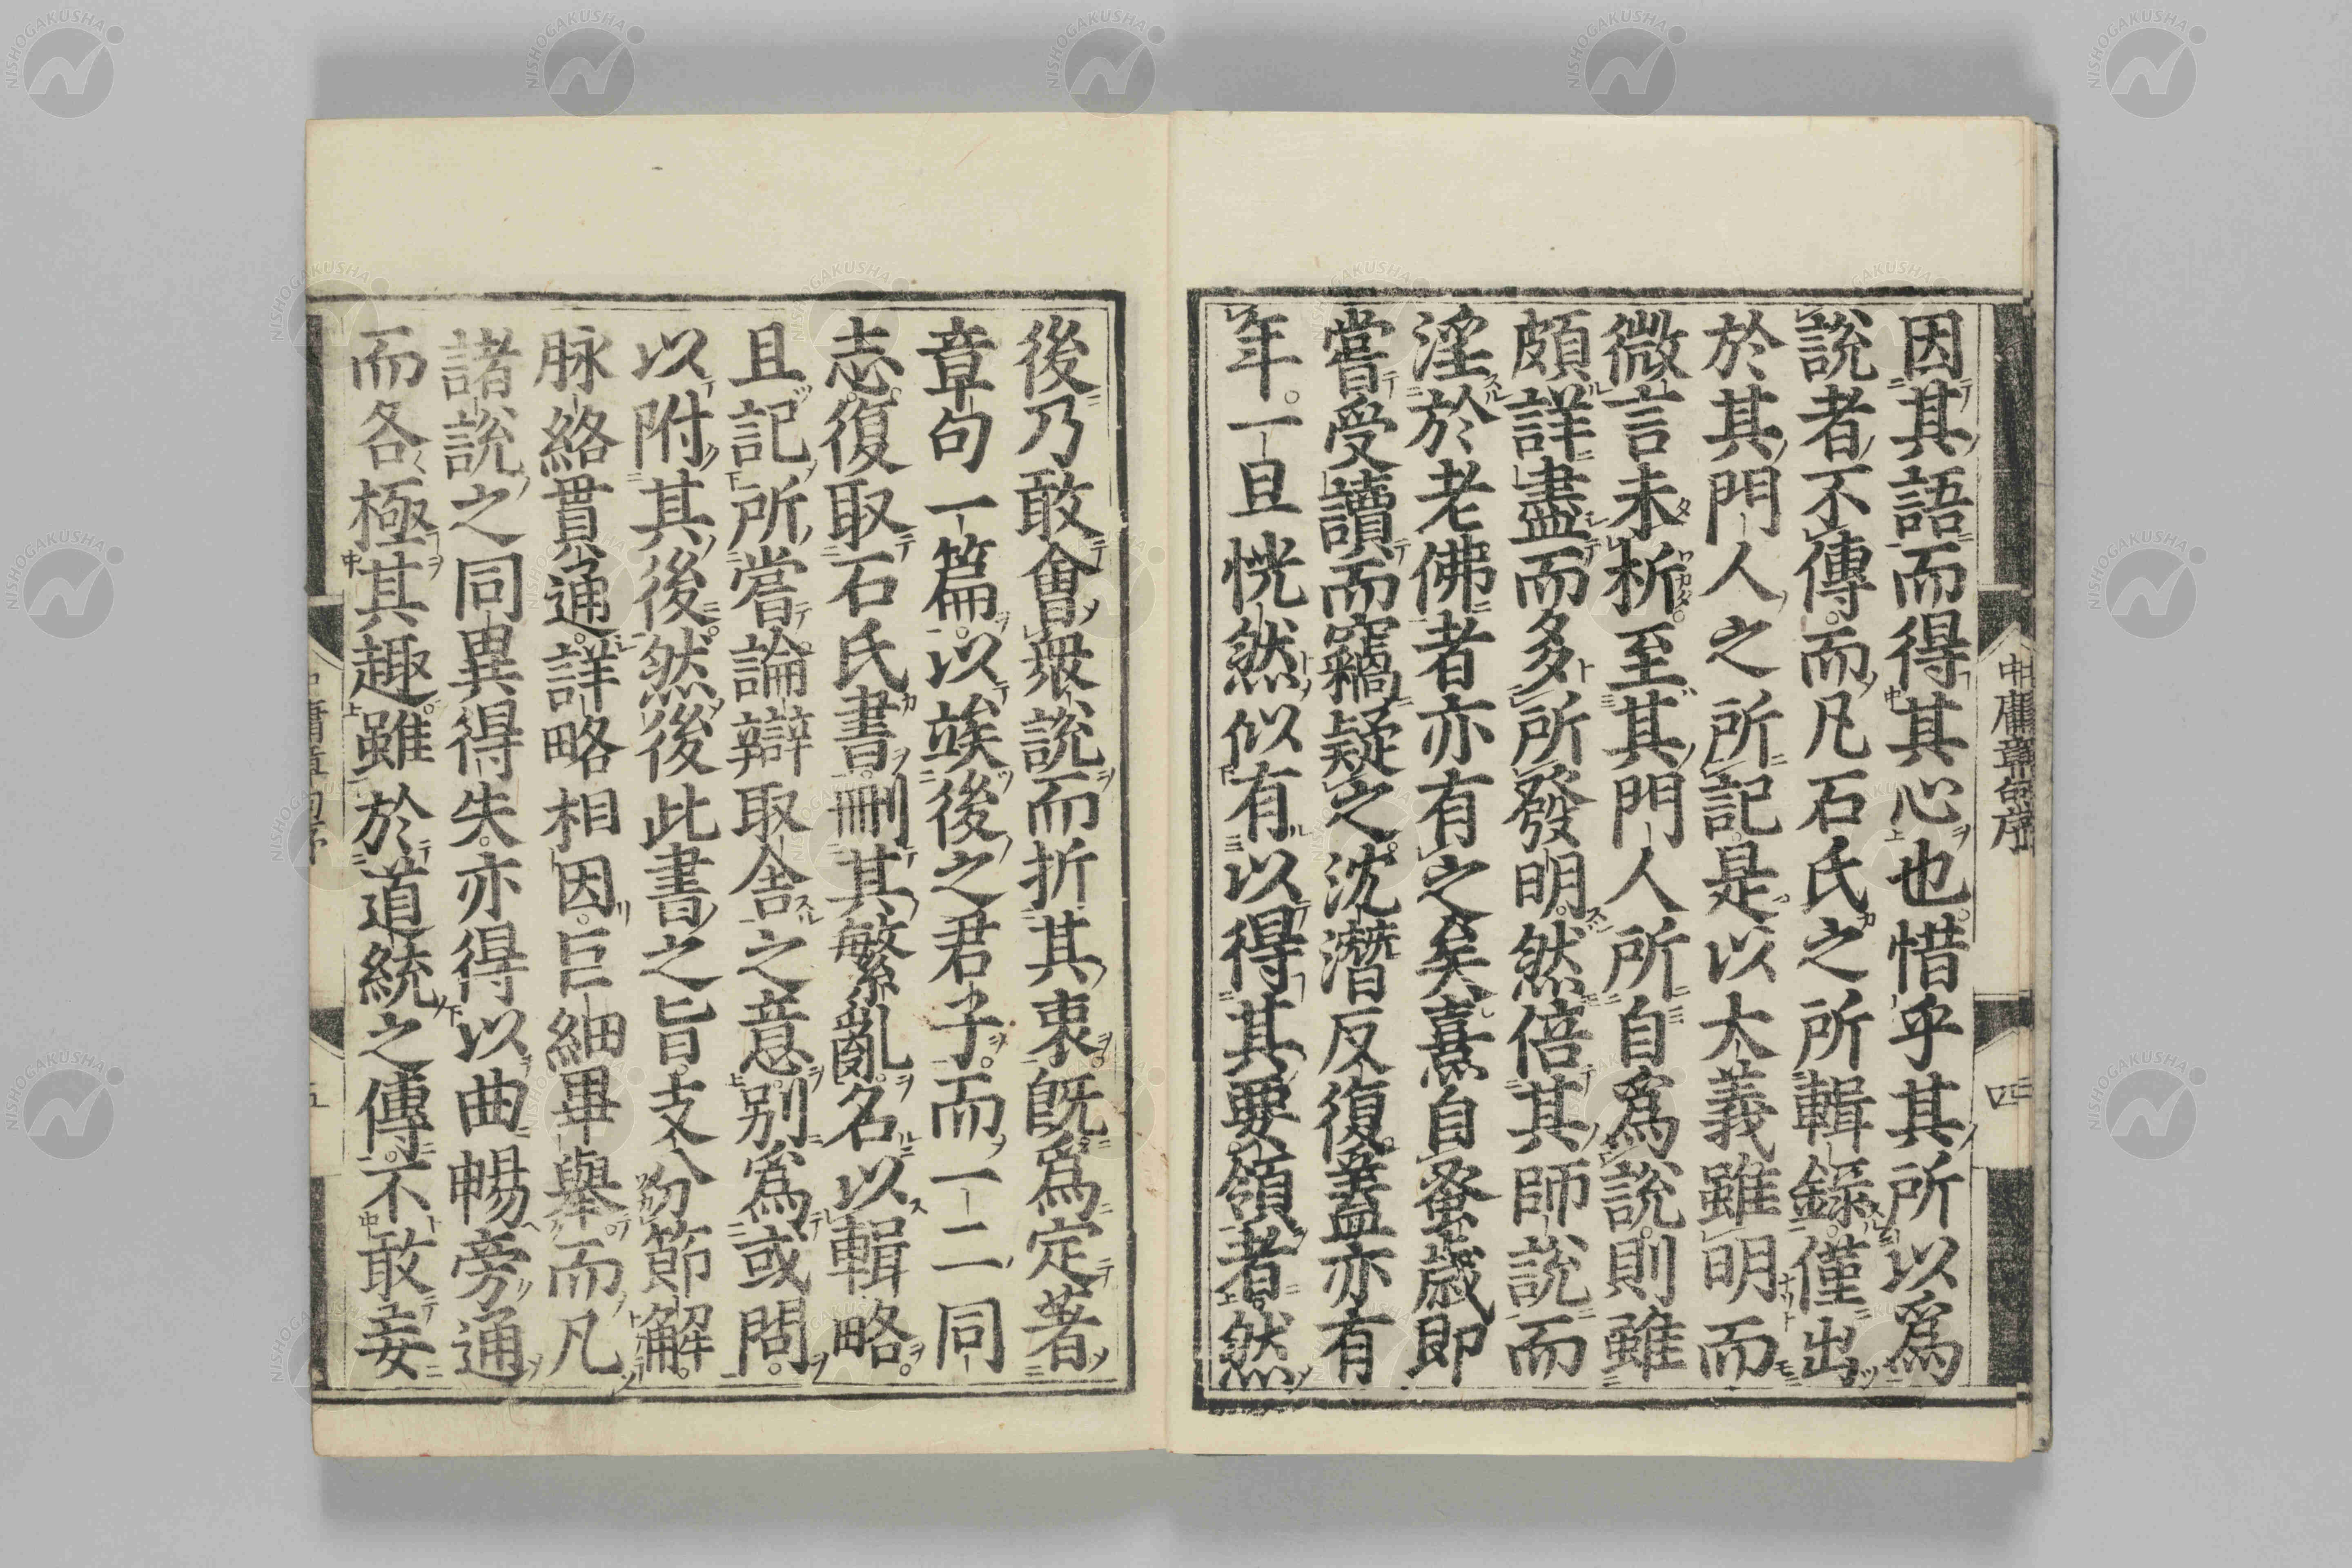 中庸章句序
四
因其語而得其心也惜乎其所以爲
說者不傳而凡石氏之所輯錄僅出
於其門人之所記是以大義雖明而
微言未析至其門人所自爲說則雖
頗詳盡而多所發明然倍其師說而
淫於老佛者亦有之矣熹自蚤歲即
嘗受讀而竊疑之沈潛反復蓋亦有
年一旦恍然似有以得其要領者然
後乃敢會衆說而折其衷旣爲定著
章句一篇以竢後之君子而一二同
志復取石氏書刪其繁亂名以輯略
且記所嘗論辯取舍之意別爲或問
以附其後然後此書之旨支分節解
脉絡貫通詳略相因巨細畢舉而凡
諸說之同異得失亦得以曲暢旁通
而各極其趣雖於道統之傳不敢妄
五
NISHOGAKUSHA